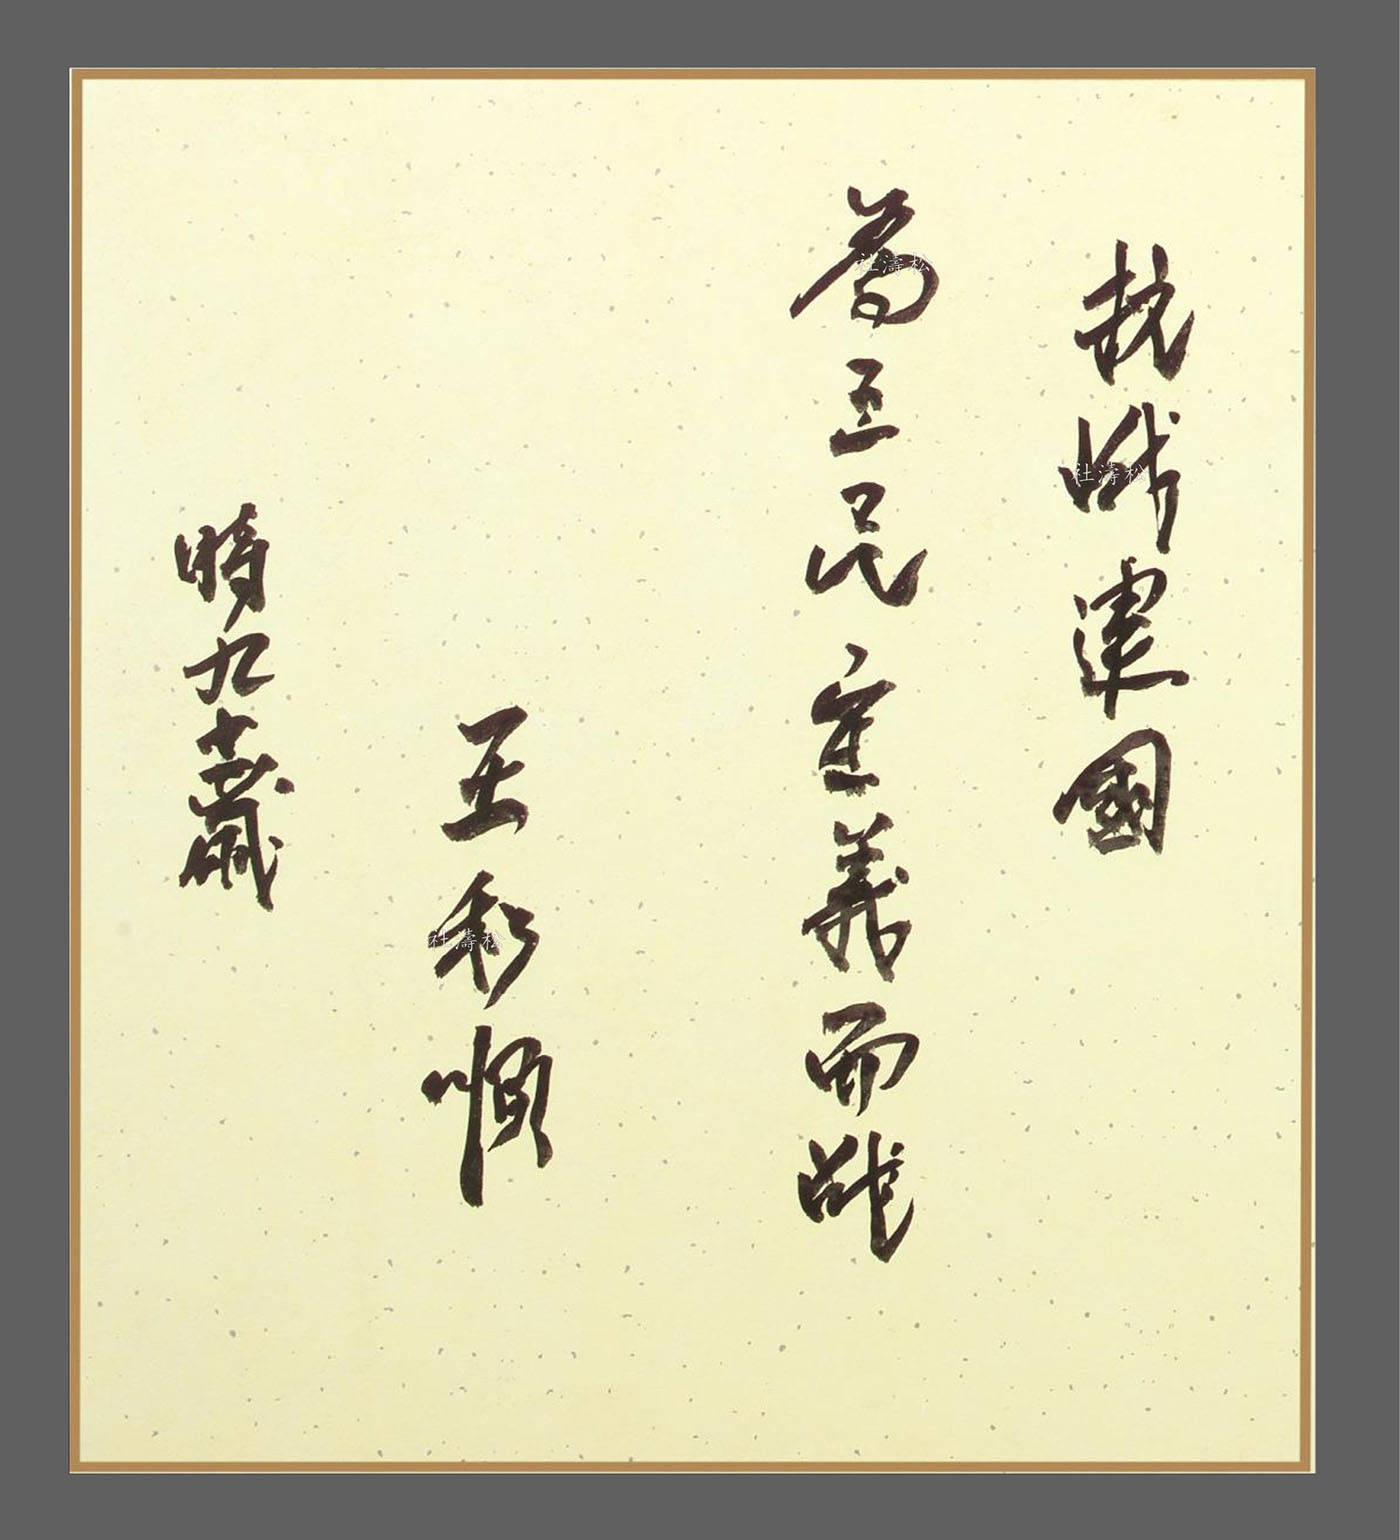 抗战建國
為三民主義而战
王和順
時九十歲
杜濤松
杜濤松
杜濤松